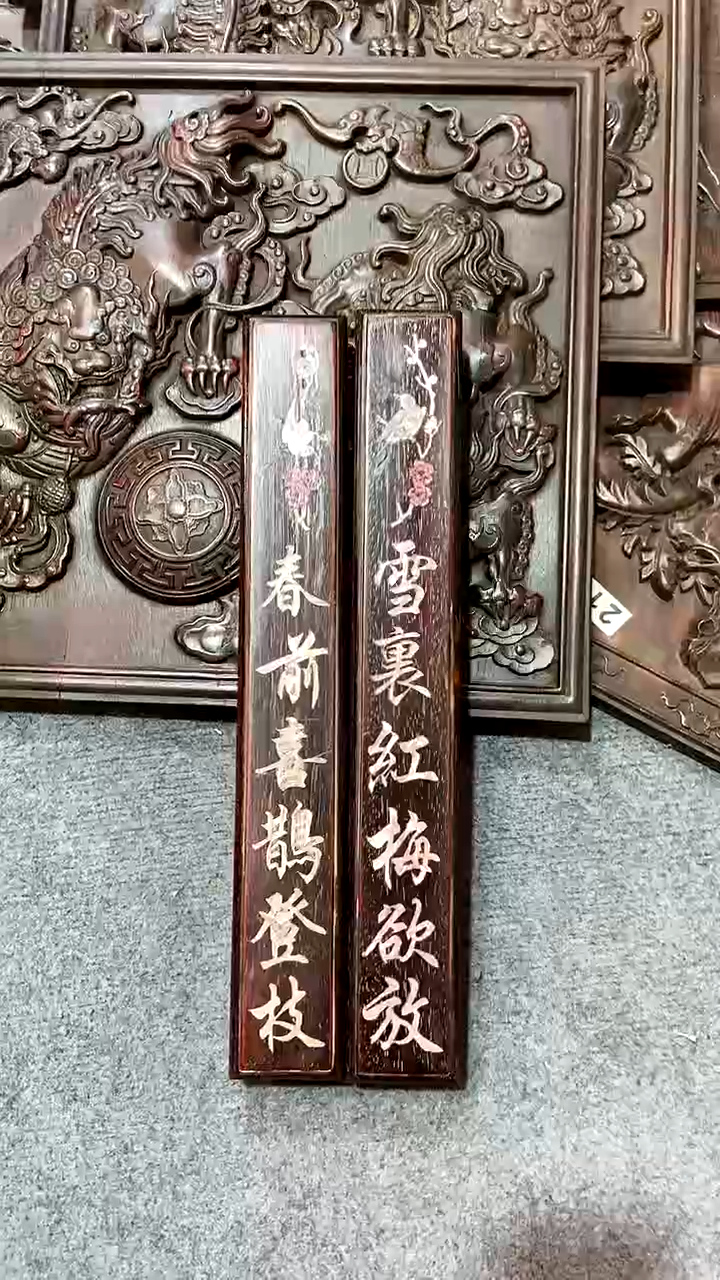 雪裏紅梅欲放
春前喜鵲登枝
21